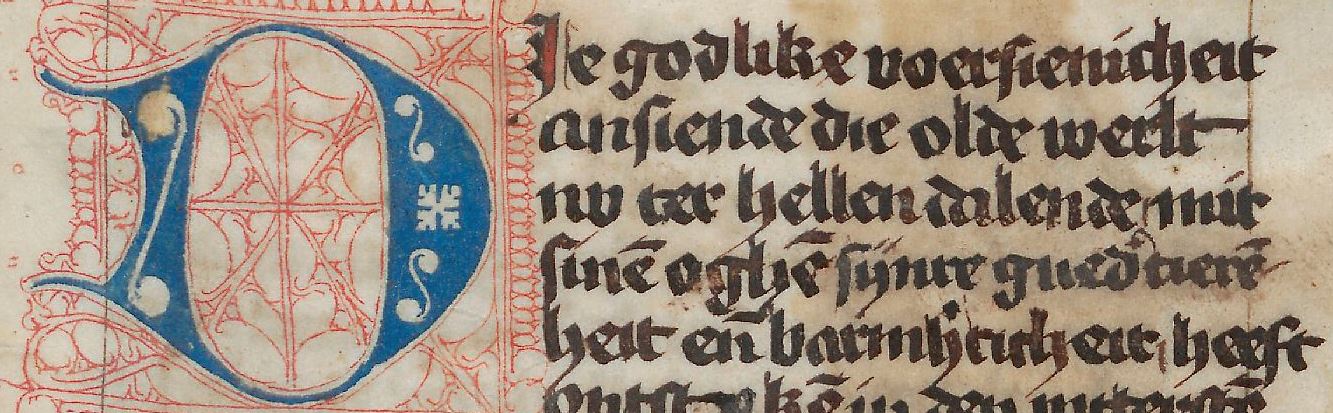 Die godlike voersienicheit
ansiende die olde werlt
nv ter hellen dalende, mit
sinē oghē sijnre gued'tierē
heit eñ barmh'ticheit, heeft
in den